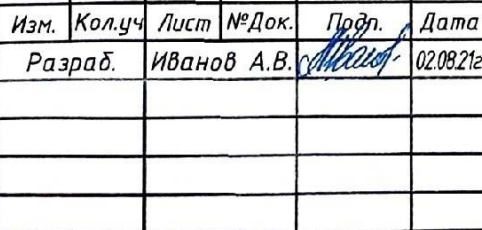 Изм. Кол.уч Лист №Док. Подп. Дата
Разраб. Иванов А.В. Иванов 02.08.21г